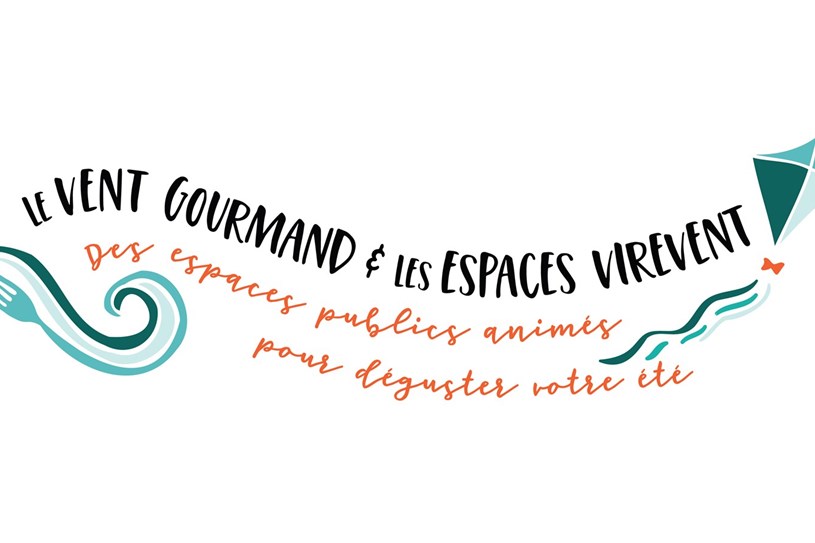 LE VENT GOURMAND & LES ESPACES VIREVENT
Des espaces publics animés
pour déguster votre été